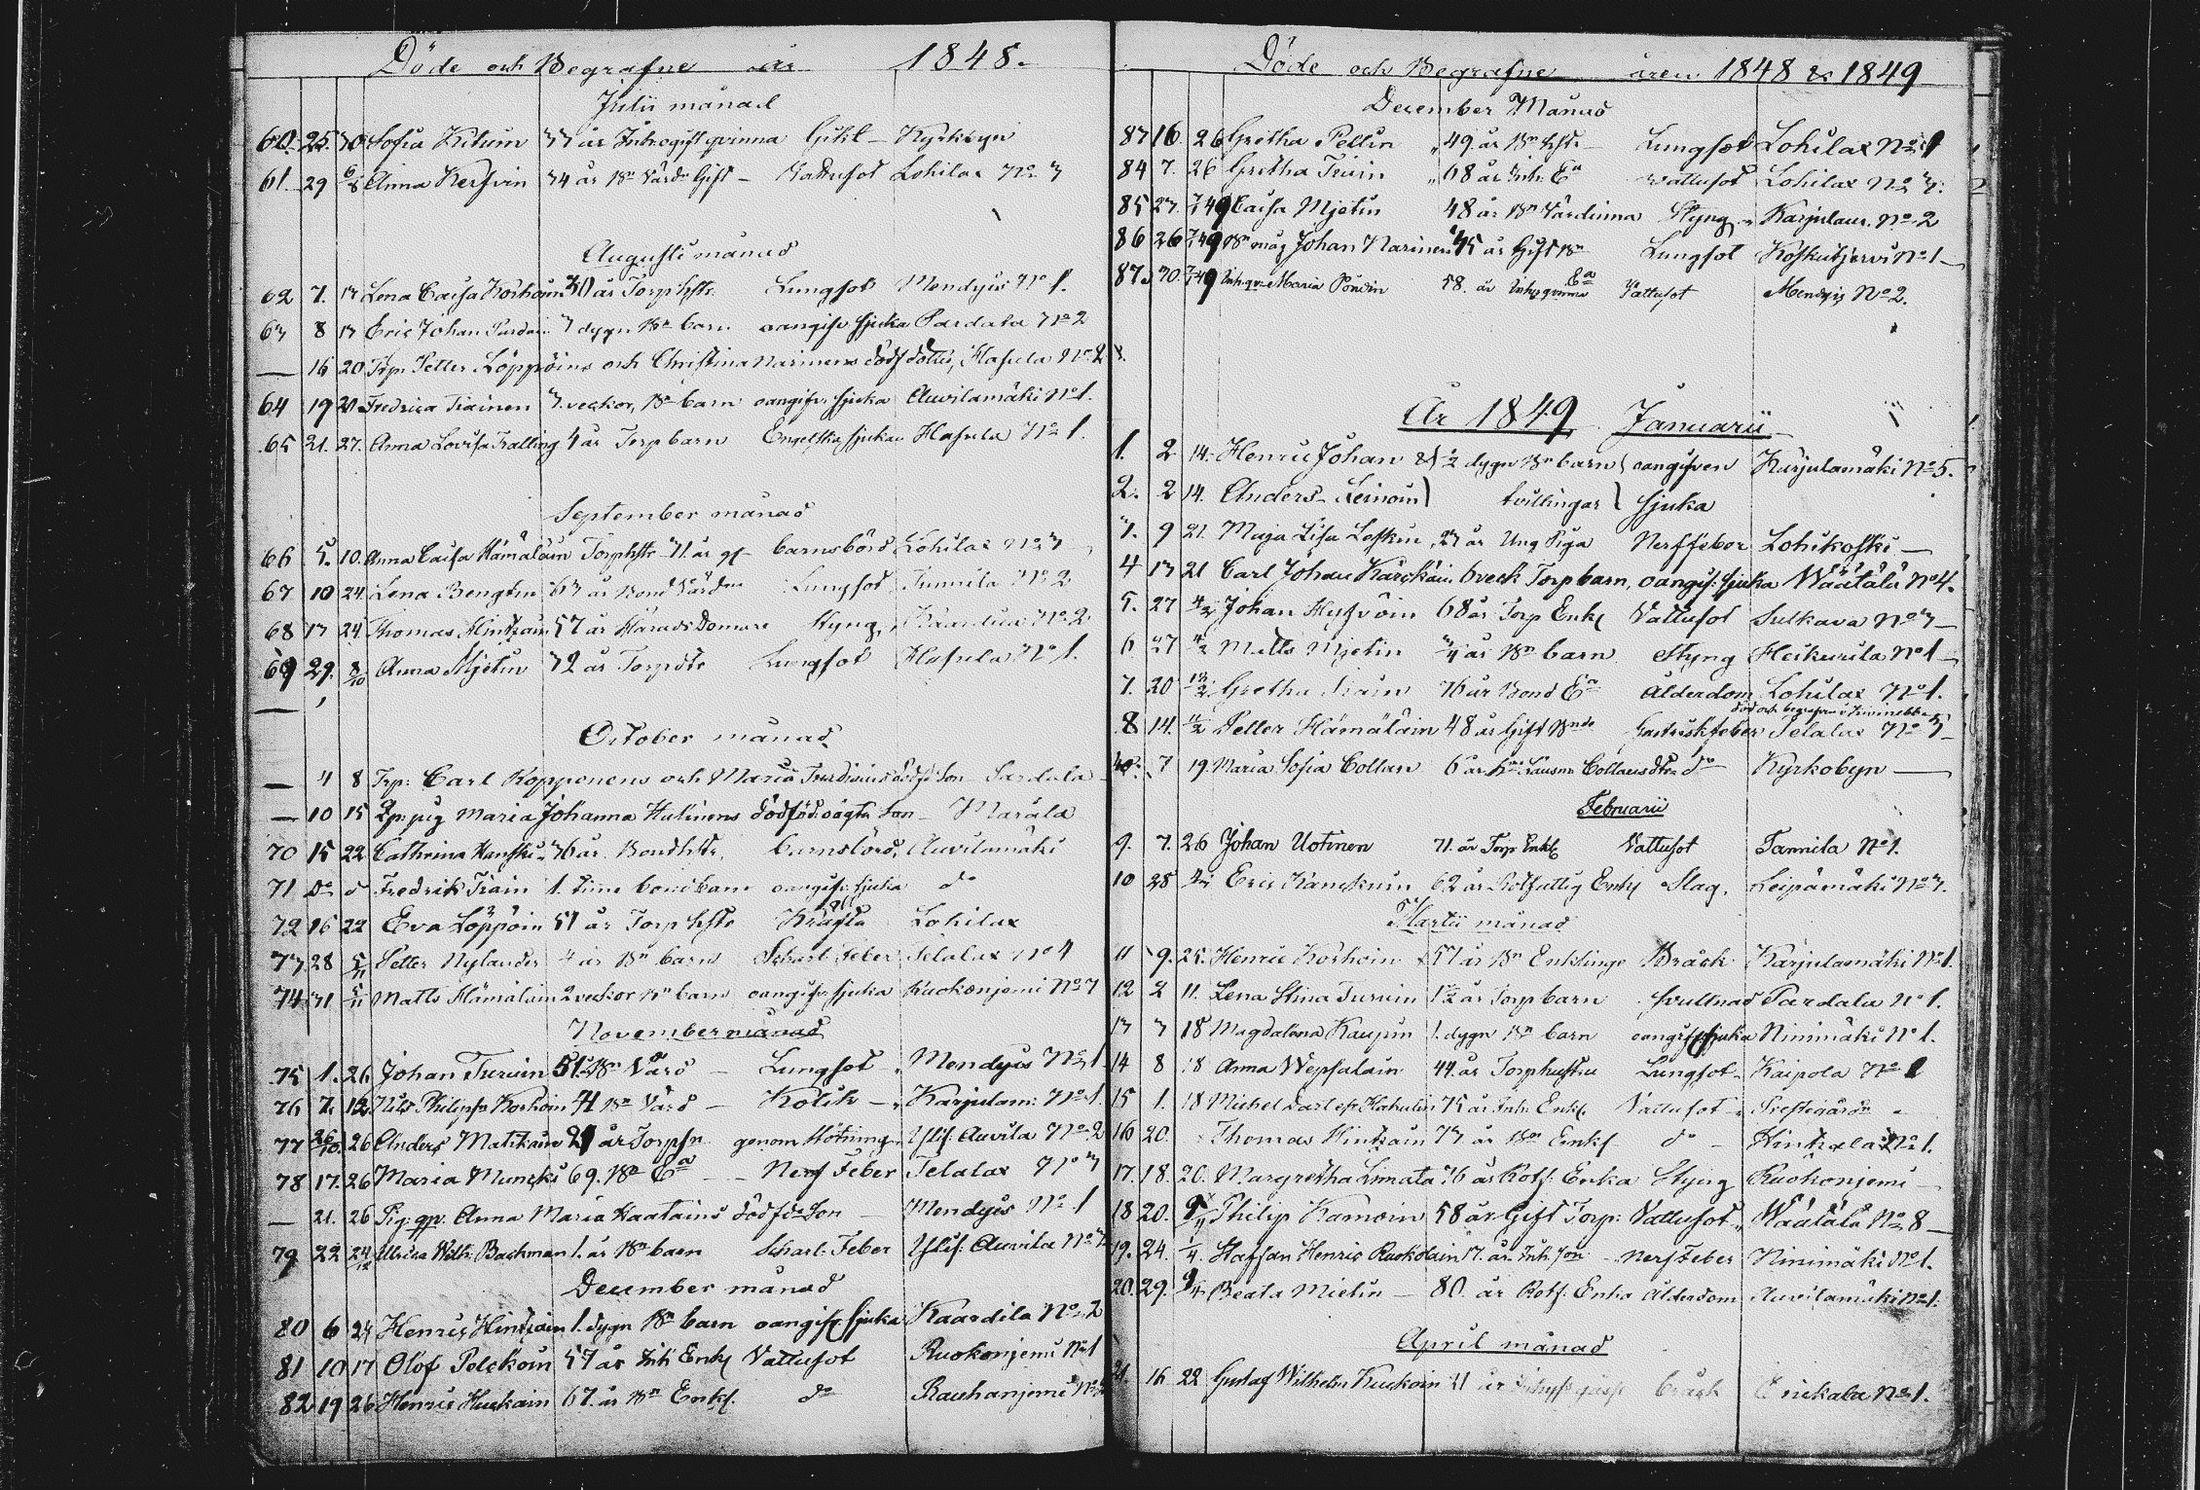 Döde och Begrafne år 1848.
Julii månad
60. 25. 30 Sofia Kitunin 33 år Inh. ogift qvinna Gikt - Kyrkbyn
61 29 6/8 Anna Kerfvin 34 år Bn Värd. Gift - Vattusot Lohilax No 3
Augusti månad
62 7. 13 Lena Caisa Korhoin 30 år Torp hstr. Lungsot Mendyis No 1.
63 8 13 Eric Johan Pardain 3 dygn Bn barn oangifv. sjuka Pardala No 2
— 16 20 Trp. Petter Löppöins och Christina Narinens dödf. dotter, Hasula No 2
64 19 20 Fredrica Tiainen 3. veckor, Bn barn oangifv. sjuka Auvilamäki No 1.
65 21. 27. Anna Lovisa Tralling 4 år Torp barn Engelska sjukan Hasula No 1.
September månad
66 5. 10. Anna Caisa Hämäläin Torphstr 31. år gl. barnsbörd Lohilax No 3
67 10 24. Lena Bengtin 63 år Bond Värdna Lungsot Tunnila No 2
68 13 24. Thomas Hintzain 57 år Härads Domare Styng Kaartila No 2
69 29. 8/10 Anna Mjetin 32 år Torpdtr Lungsot Hasula No 1.
—
October månad
— 4 8 Trp: Carl Kopponens och Maria dödf. Son Pardala
— 10 15 Maria Johanna Hulinens dödföd. oägta Son - Marala
70 15 22 Cathrina Hanski 36 år. Bondhstr, barnsbörd, Auvilamäki
71 Do do Fredrik Tiain 1. time bond barn oangifv. sjuka do
72 16 22 Eva Löppöin 51 år Torp hstr Kräfta Lohilax
73 28 5/11 Petter Nylander 4 år Bn barn Scharl: Feber Telalax No 4
74 31 5/11 Matts Hämäläin 2 veckor Bn barn oangifv sjuka Ruokonjemi No 3
November månad
75 1. 26 Johan Turuin 51. Bn Värd - Lungsot Mendyis No 1
76 7. 12 Nils Philipsr Korhoin 41 Bn Värd - Kolik - Karjulam: No 1.
77 26/10. 26 Anders Matikain 21 år Torpsn genom Stötning Ylif: Auvila No 2
78 17. 26 Maria Muncki 69. Bn Ea - Nerf Feber Telalax No 3
— 21. 26 Pig: qv. Anna Maria Haatains dödfdn Son Mendyis No 1
79 22 24/12 Ulrica Wilh: Backman 1. år Bn barn Scharl: Feber Ylif: Auvila No 2
December månad
80 6 24 Henric Hintzain 1. dygn Bn barn oangifv sjuka Kaardila No 2
81 10 17 Olof Pelekoin 57 år Inh Enkl Vattusot Ruokonjemi No 1
82 19 26 Henric Huckain 67. år Bn Enkl. do Rauhanjemi No 2
Döde och Begrafne åren 1848 & 1849
December Månad
83 16 26 Gretha Pellin 49. år Bn hstr - Lungsot Lohilax No 1
84 7. 26 Gretha Tiain 68 år Inh. Ea Vattusot Lohilax No 3.
85 23. 7/1 49 Caisa Mjetin 48 år Bn Värdinna Styng Karjulam. No 2
86 26 7/1 49 Bn måg Johan Narinen 45 år Gift Bn Lungsot Koskutjervi No 1
87 30. 7/1 49 Inh. qv: Maria Pöndin 58. år Inhs qvinna Ea Vattusot Mendyis No 2.
År 1849 Januarii
1. 2 14. Henric Johan & 1/2 dygn Bn barn oangifven Karjulamäki No 5.
2. 2 14. Anders Reinoin tvillingar sjuka
3. 9 21. Maja Lisa Leskin 23 år Ung Piga Nerffeber Lohikoski —
4 13 21 Carl Johan Kärckäin 6 veck Torp barn, oangif: sjuka Wäätälä No 4.
5. 27 4/2 Johan Hyfvöin 68 år Torp Enkl Vattusot Sulkava No 3
6 27 4/2 Matts Mjetin 3/4 år Bn barn Styng Heikurila No 1
7. 20 18/2 Gretha Tiain 76 år Bond Ea Ålderdom Lohilax No 1.
död och begrafven i Kivinebb
8 14. 11/2 Petter Hämäläin 48 år Gift Bnde Gastriskfeber Telalax No 3
7 19. Maria Sofia Collan 6 år Kro Länsm Collans dtr do Kyrkobyn —
Februarii
9. 7. 26 Johan Uotinen 71. år Torp Enkl Vattusot Tannila No 1.
10 28 Eric Känckuin 62 år Rotfattig Enkl Slag. Leipämäki No 3.
Martii månad
11 9. 25. Henric Korhoin 57 år Bn Enklinge Bråck Karjulamäki No 1.
12 2 11. Lena Stina Turuin 1 1/2 år Torp barn svullnad Pardala No 1.
13 3 18 Magdalena Kaupin 1. dygn Bn barn oangifv sjuka Ninimäki No 1.
14 8 18 Anna Wepsäläin 44. år Torphustru Lungsot Kaipola No 1
15 1. 18 Michel Carlsr Hahulin 75 år Inh: Enkl. Vattusot Prestegårdn
16 20. Thomas Hintzain 73 år Bn Enkl do - Hintzala No 1.
17. 18. 20. Margretha Limata 36 år Rotf. Enka Styng Ruokonjemi —
18 20. 9/4 Philip Kamoin 58 år Gift Torp: Vattusot Wäätälä No 8
19. 24. 1/4. Staffan Henric Ruokolain 17. år. Inh. son - nerf Feber Ninimäki No 1.
20. 29. 9/4 Beata Mietin — 80. år Rotf: Enka Ålderdom Auvilamäki No 1.
April månad
21. 16 22 Gustaf Wilhelm Kuckoin 21 år bråck Enckala No 1.